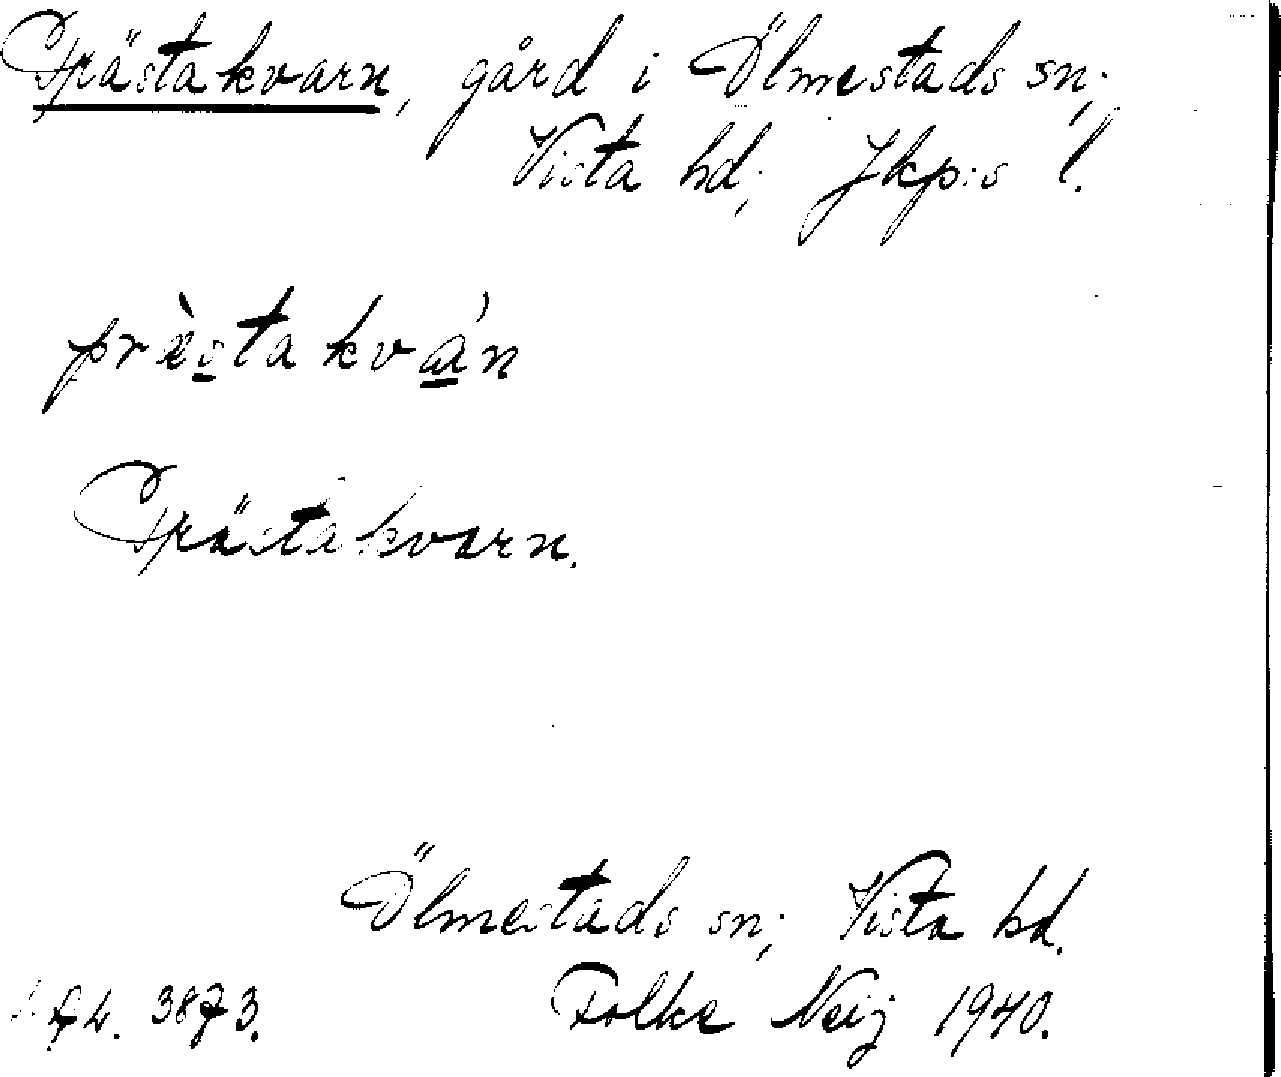 Prästakvarn, gård i Ölmestads sn;
Vista hd; Jkp:s l.
præ̀stakván
Prästakvarn.
Ölmestads sn; Vista hd.
3873. Folke Neij 1940.